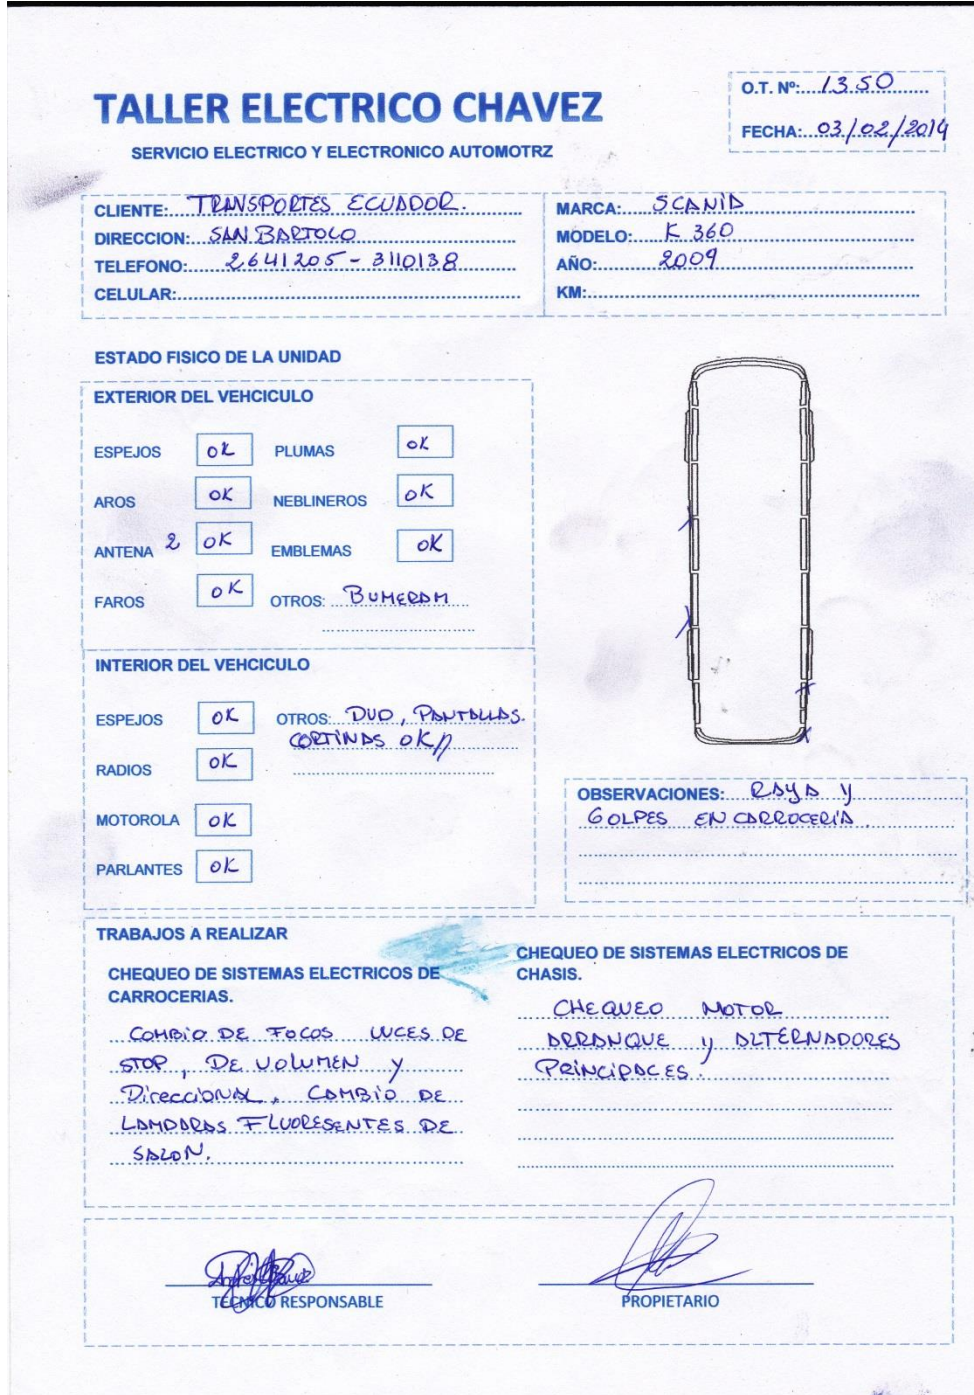 TALLER ELECTRICO CHAVEZ
SERVICIO ELECTRICO Y ELECTRONICO AUTOMOTRZ
O.T. Nº: 1350
FECHA: 03/02/2014
CLIENTE: TRANSPORTES ECUADOR.
DIRECCION: SAN BARTOLO
TELEFONO: 2641205 - 3110138
CELULAR:
MARCA: SCANIA
MODELO: K 360
AÑO: 2009
KM:
ESTADO FISICO DE LA UNIDAD
EXTERIOR DEL VEHCICULO
ESPEJOS OK PLUMAS OK
AROS OK NEBLINEROS OK
ANTENA 2 OK EMBLEMAS OK
FAROS OK OTROS: BUMERAM
INTERIOR DEL VEHCICULO
ESPEJOS OK OTROS: DVD, PANTALLAS.
CORTINAS OK//
RADIOS OK
MOTOROLA OK
PARLANTES OK
OBSERVACIONES: RAYA Y
GOLPES EN CARROCERIA.
TRABAJOS A REALIZAR
CHEQUEO DE SISTEMAS ELECTRICOS DE
CARROCERIAS.
COMBIO DE FOCOS LUCES DE
STOP, DE VOLUMEN Y
DIRECCIONAL, CAMBIO DE
LAMPARAS FLUORESENTES DE
SALON.
CHEQUEO DE SISTEMAS ELECTRICOS DE
CHASIS.
CHEQUEO MOTOR
ARRANQUE Y ALTERNADORES
PRINCIPALES.
TECNICO RESPONSABLE
PROPIETARIO